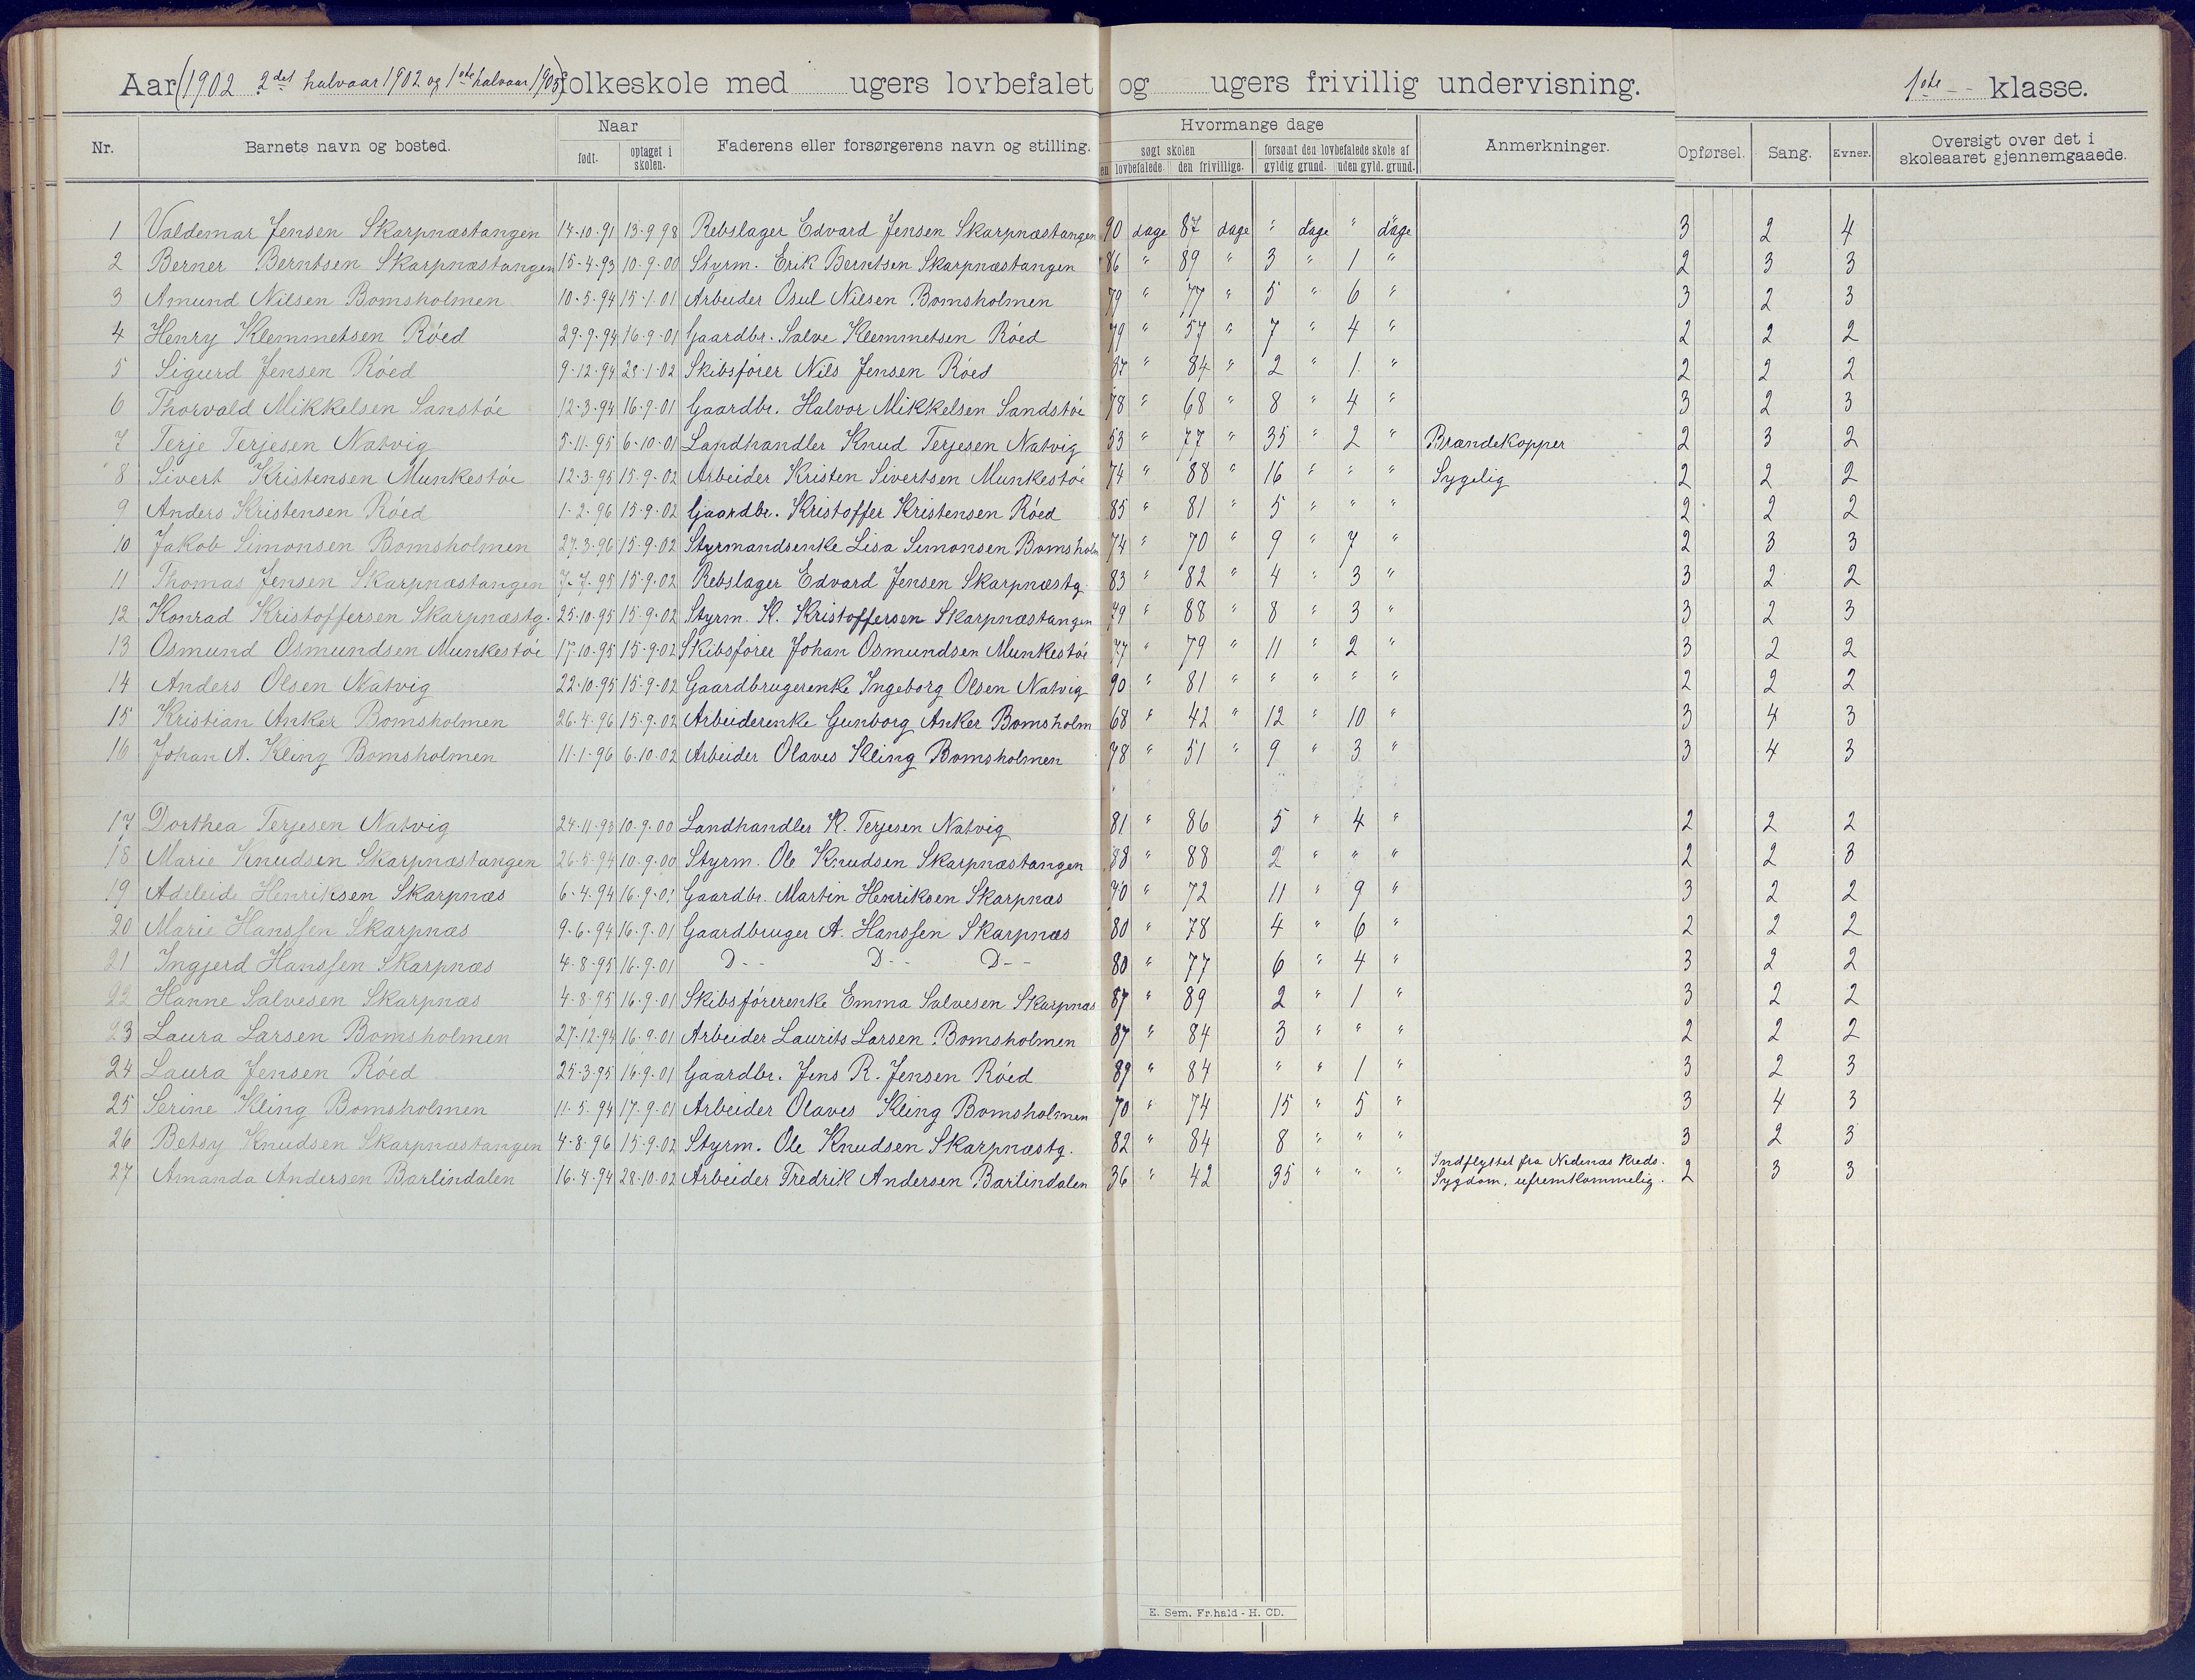 Aar (1902 2det halvaar 1902 og 1ste halvaar 1903) folkeskole med ugers lovbefalet og ugers frivillig undervisning. 1ste klasse.
Nr. Barnets navn og bosted. Naar født. optaget i skolen. Faderens eller forsørgerens navn og stilling. Hvormange dage søgt skolen den lovbefalede. den frivillige. forsømt den lovbefalede skole af gyldig grund. uden gyld. grund. Anmerkninger. Opførsel. Sang. Evner. Oversigt over det i skoleaaret gjennemgaaede.
1 Valdemar Jensen Skarpnæstangen 14-10-91 13-9-98 Rebslager Edvard Jensen Skarpnæstangen 90 dage 87 dage " dage " dage 3 2 4
2 Berner Berntsen Skarpnæstangen 15-4-93 10-9-00 Styrm. Erik Berntsen Skarpnæstangen 86 " 89 " 3 " 1 " 2 3 3
3 Amund Nilsen Bomsholmen 10-5-94 15-1-01 Arbeider Osul Nilsen Bomsholmen 79 " 77 " 5 " 6 " 3 2 3
4 Henry Klemmetsen Röed 29-9-94 16-9-01 Gaardbr. Salve Klemmetsen Röed 79 " 57 " 7 " 4 " 2 2 2
5 Sigurd Jensen Röed 9-12-94 29-1-02 Skibsförer Nils Jensen Röed 87 " 84 " 2 " 1 " 2 2 2
6 Thorvald Mikkelsen Sanstöe 12-3-94 16-9-01 Gaardbr. Halvor Mikkelsen Sandstöe 78 " 68 " 8 " 4 " 3 2 3
7 Terje Terjesen Natvig 5-11-95 6-10-01 Landhandler Knud Terjesen Natvig 53 " 77 " 35 " 2 " Brændekopper 2 3 2
8 Sivert Kristensen Munkestöe 12-3-95 15-9-02 Arbeider Kristen Sivertsen Munkestöe 74 " 88 " 16 " " " Sygelig 2 2 2
9 Anders Kristensen Röed 1-2-96 15-9-02 Gaardbr. Kristoffer Kristensen Röed 85 " 81 " 5 " " " 2 2 2
10 Jakob Simonsen Bomsholmen 27-3-96 15-9-02 Styrmandsenke Lisa Simonsen Bomsholm 74 " 70 " 9 " 7 " 2 3 3
11 Thomas Jensen Skarpnæstangen 7-7-95 15-9-02 Rebslager Edvard Jensen Skarpnæstg. 83 " 82 " 4 " 3 " 3 2 2
12 Konrad Kristoffersen Skarpnæstg. 25-10-95 15-9-02 Styrm. K. Kristoffersen Skarpnæstangen 79 " 88 " 8 " 3 " 3 2 3
13 Osmund Osmundsen Munkestöe 17-10-95 15-9-02 Skibsförer Johan Osmundsen Munkestöe 77 " 79 " 11 " 2 " 3 2 2
14 Anders Olsen Natvig 22-10-95 15-9-02 Gaardbrugerenke Ingeborg Olsen Natvig 90 " 81 " " " " " 2 2 2
15 Kristian Anker Bomsholmen 26-4-96 15-9-02 Arbeiderenke Gunborg Anker Bomsholm 68 " 42 " 12 " 10 " 3 4 3
16 Johan A. Kling Bomsholmen 11-1-96 6-10-02 Arbeider Olaves Kling Bomsholmen 78 " 51 " 9 " 3 " 3 4 3
17 Dorthea Terjesen Natvig 24-11-93 10-9-00 Landhandler K. Terjesen Natvig 81 " 86 5 " 4 " 2 2 2
18 Marie Knudsen Skarpnæstangen 26-5-94 10-9-00 Styrm. Ole Knudsen Skarpnæstangen 88 " 88 2 " " " 2 2 3
19 Adeleide Henriksen Skarpnæs 6-4-94 16-9-01 Gaardbr. Martin Henriksen Skarpnæs 70 " 72 11 " 9 " 3 2 2
20 Marie Hanssen Skarpnæs 9-6-94 16-9-01 Gaardbruger A. Hanssen Skarpnæs 80 " 78 4 " 6 " 2 2 2
21 Ingjerd Hanssen Skarpnæs 4-8-95 16-9-01 D-- D-- D-- 80 " 77 6 " 4 " 3 2 2
22 Hanne Salvesen Skarpnæs 4-8-95 16-9-01 Skibsförerenke Emma Salvesen Skarpnæs 87 " 89 2 " 1 " 3 2 2
23 Laura Larsen Bomsholmen 27-12-94 16-9-01 Arbeider Laurits Larsen Bomsholmen 87 " 84 3 " " " 2 2 2
24 Laura Jensen Röed 25-3-95 16-9-01 Gaardbr. Jens R. Jensen Röed 89 " 84 " " 1 " 3 2 3
25 Serine Kling Bomsholmen 11-5-94 17-9-01 Arbeider Olaves Kling Bomsholmen 70 " 74 15 " 5 " 3 4 3
26 Betsy Knudsen Skarpnæstangen 4-8-96 15-9-02 Styrm. Ole Knudsen Skarpnæstg. 82 " 84 8 " " " 3 2 3
27 Amanda Andersen Barlindalen 16-4-94 28-10-02 Arbeider Fredrik Andersen Barlindalen 36 " 42 35 " " " Indflyttet fra Nedenæs kreds. Sygdom, ufremkommelig. 2 3 3
E. Sem, Fr.hald - H. CD.